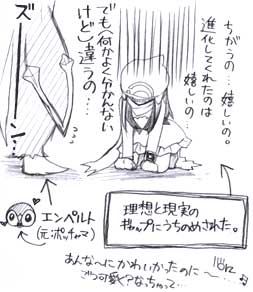 ちがうの…嬉しいの。
進化してくれたのは
嬉しいの…
でも(何かよく分かんない
けど)違うの……
ズーン…
エンペルト
(元:ポッチャマ)
理想と現実の
ギャップにうちのめされた。
あんな〜にかわいかったのに〜…